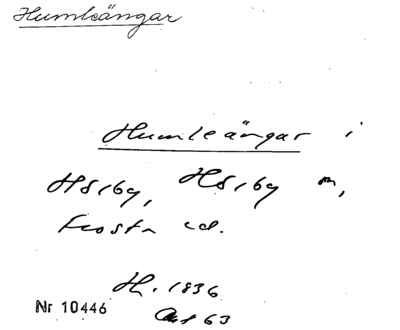 Humleängar
Humleängar i
Hörby, Hörby sn,
Frosta hd.
H. 1836
Nr 10446
63